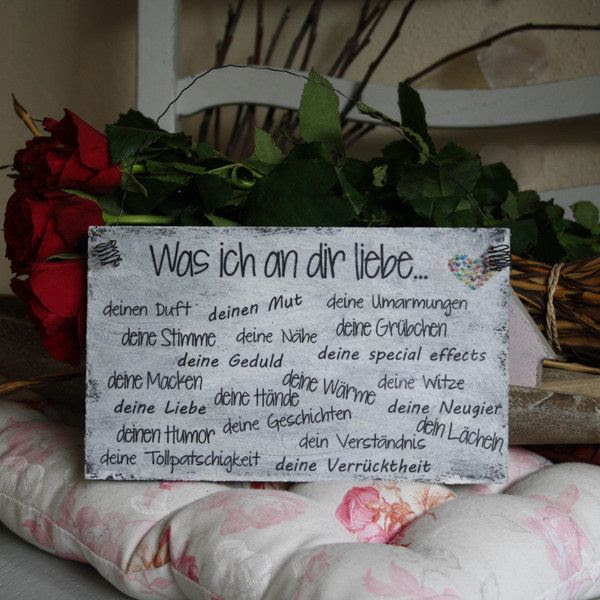 Was ich an dir liebe...
deinen Duft deinen Mut deine Umarmungen
deine Stimme deine Nähe deine Grübchen
deine Geduld deine special effects
deine Macken deine Wärme deine Witze
deine Liebe deine Hände deine Neugier
deinen Humor deine Geschichten dein Lächeln
dein Verständnis
deine Tollpatschigkeit deine Verrücktheit